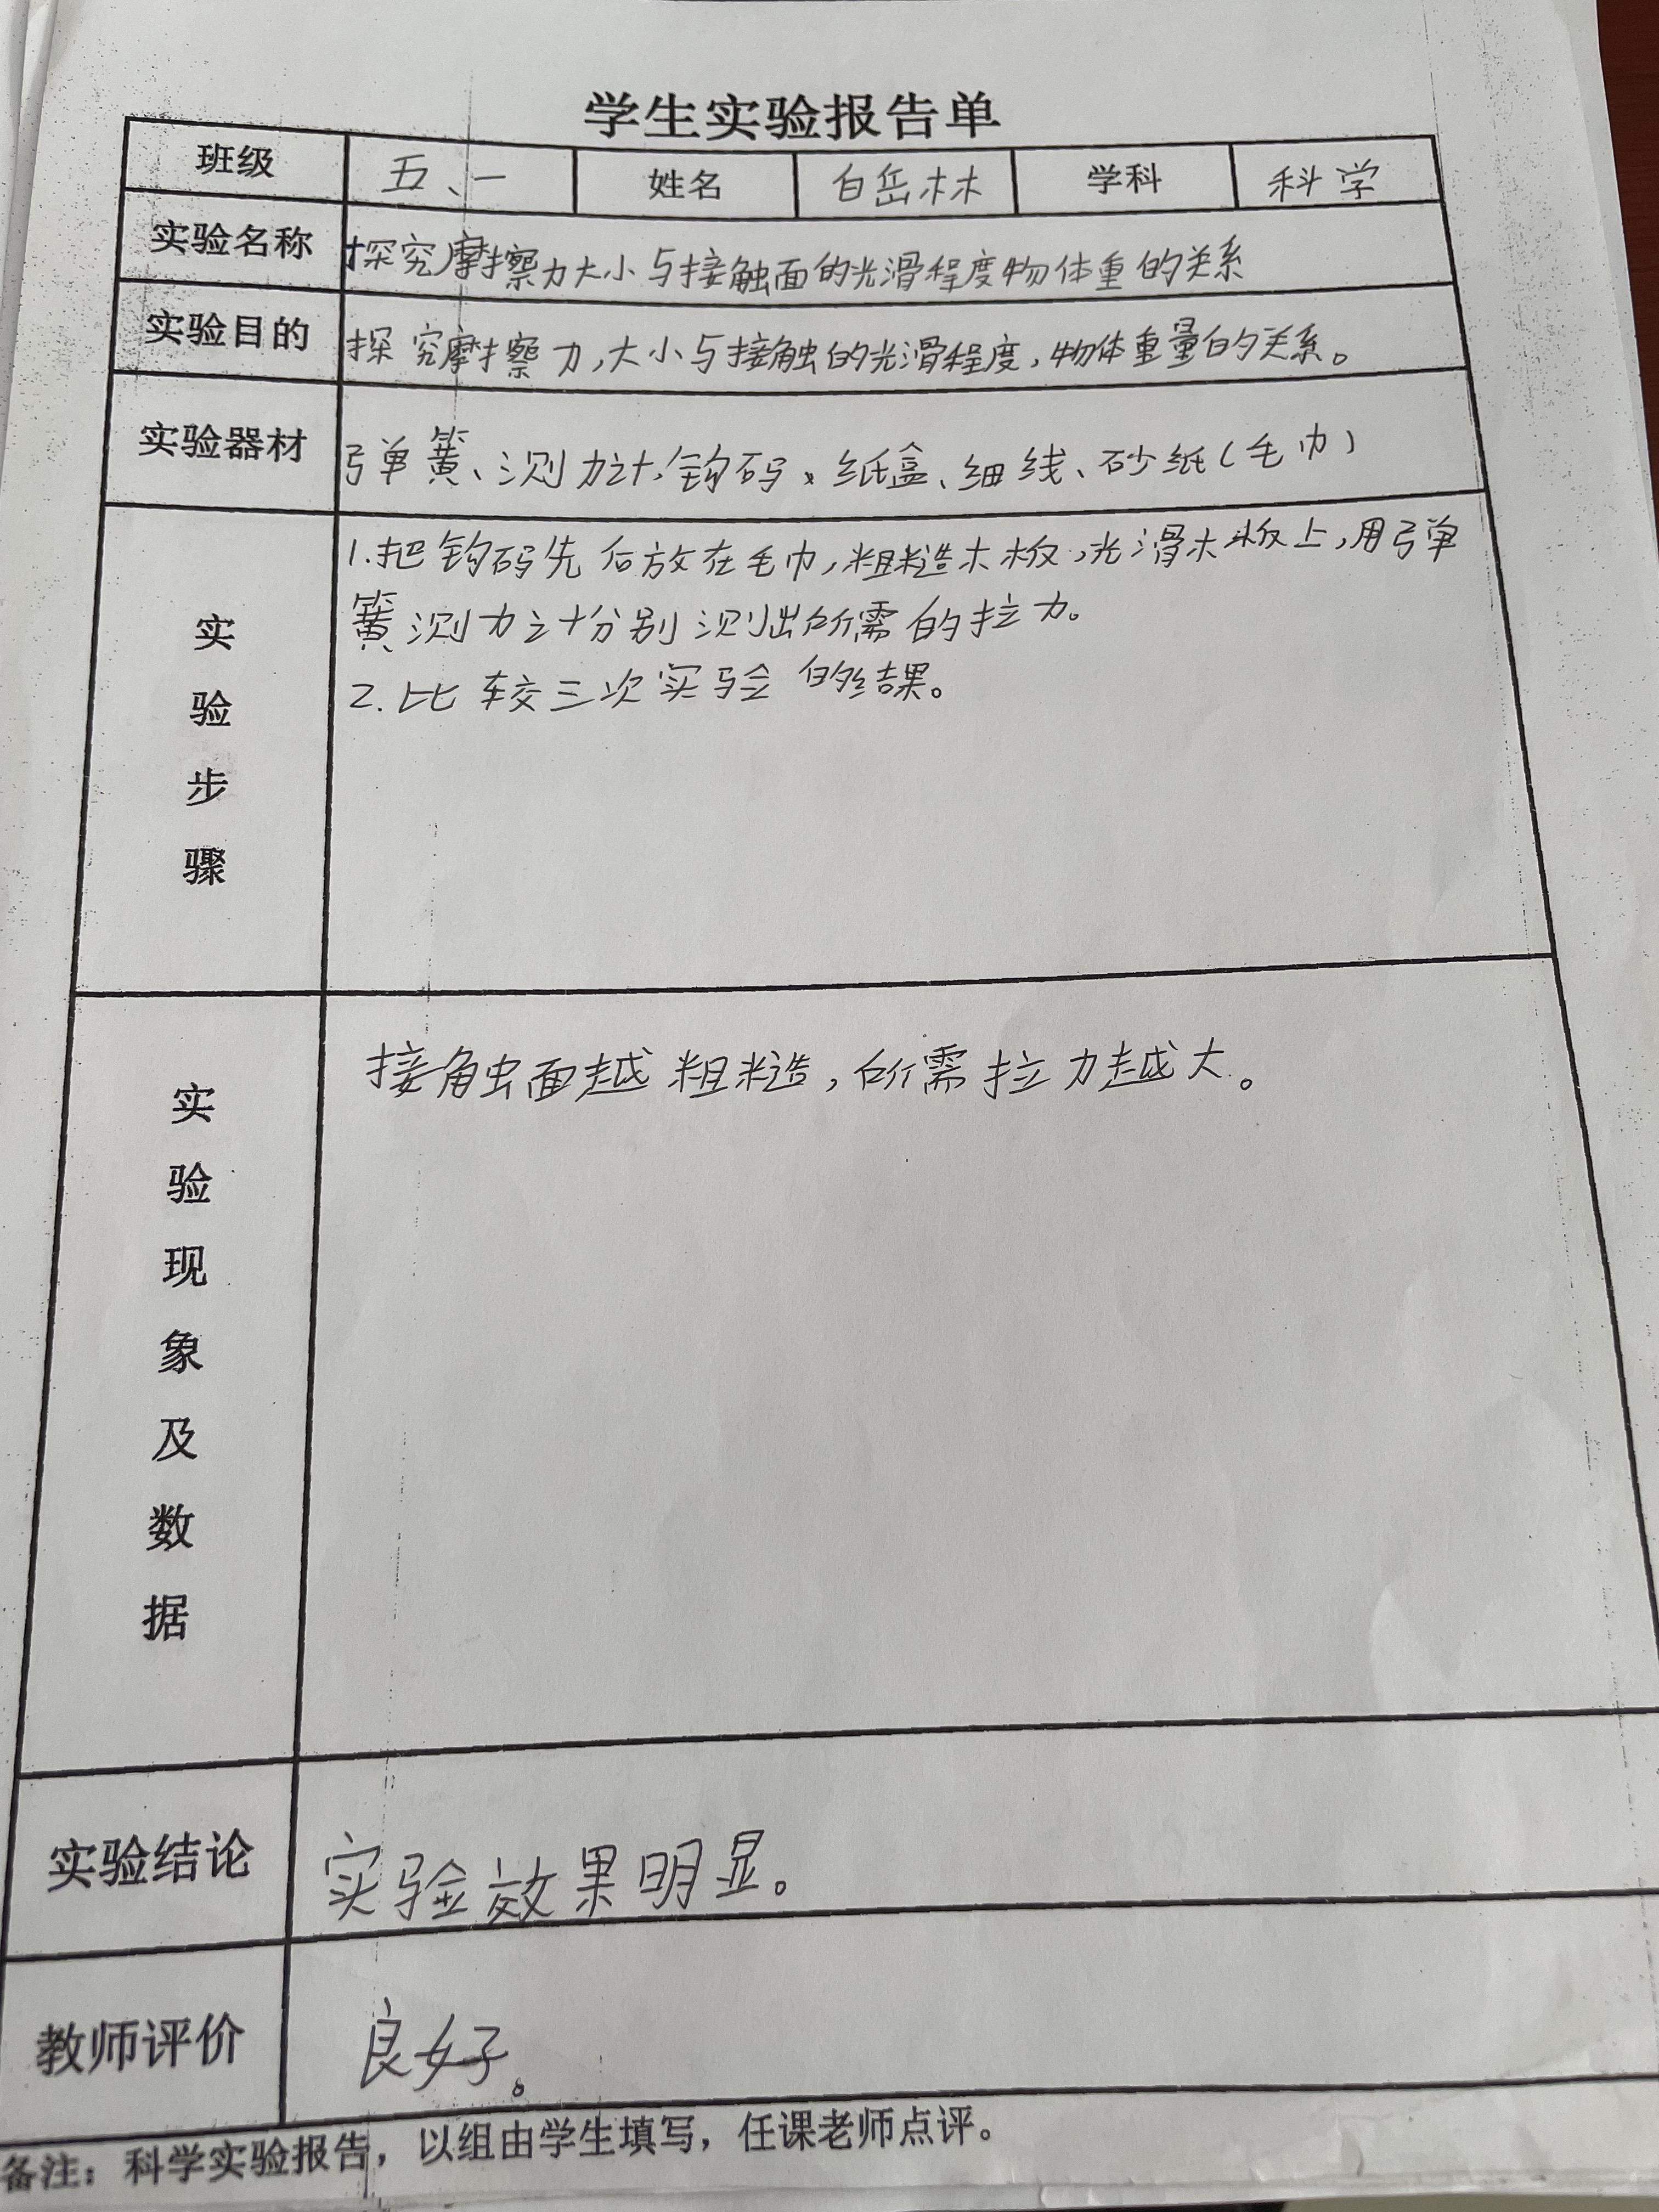 学生实验报告单
班级 五、一 姓名 白岳林 学科 科学
实验名称 探究摩擦力大小与接触面的光滑程度物体重的关系
实验目的 探究摩擦力,大小与接触的光滑程度,物体重量的关系。
实验器材 弹簧、测力计,钩码、纸盒、细线、砂纸(毛巾)
实验步骤
1.把钩码先后放在毛巾,粗糙木板,光滑木板上,用弹
簧测力计分别测出所需的拉力。
2.比较三次实验的结果。
实验现象及数据
接触面越粗糙,所需拉力越大。
实验结论 实验效果明显。
教师评价 良好。
备注:科学实验报告,以组由学生填写,任课老师点评。